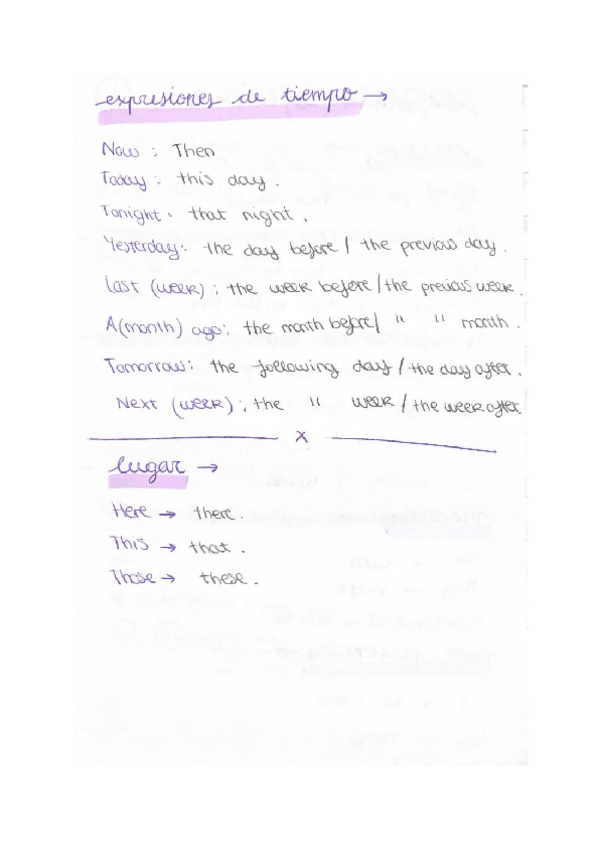 expresiones de tiempo →
Now : Then
Today : this day.
Tonight : that night.
Yesterday : the day before / the previous day.
Last (week) : the week before / the previous week.
A (month) ago : the month before / " " month.
Tomorrow : the following day / the day after.
Next (week) : the " week / the week after
x
lugar →
Here → there.
This → that.
Those → these.